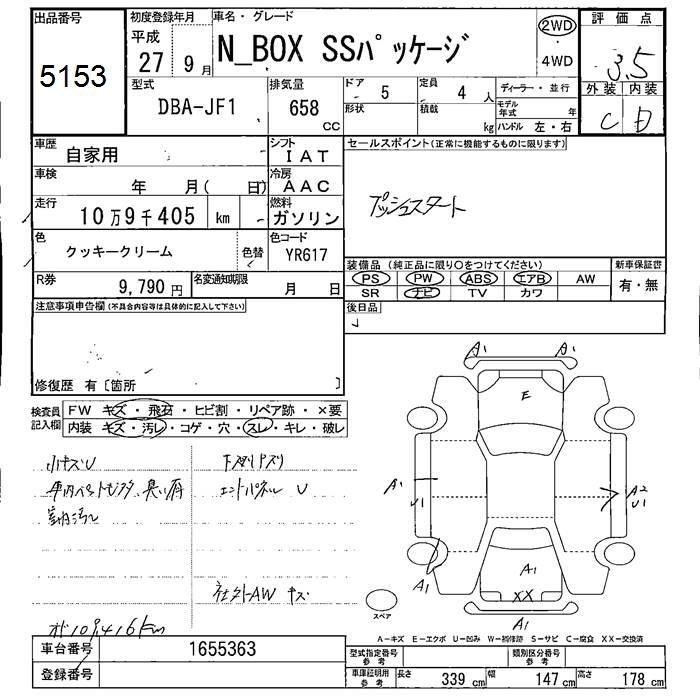 出品番号
5153
初度登録年月
平成
27 9月
車名・グレード
N_BOX SSパッケージ
2WD
4WD
評価点
3.5
外装 内装
C B
型式
DBA-JF1
排気量
658 CC
ドア 5
形状
定員 4 人
積載 kg
ディーラー・並行
モデル年式 年
ハンドル 左・右
車歴 自家用
シフト IAT
車検 年 月( 日)
冷房 AAC
走行 10万9千405 km
燃料 ガソリン
色 クッキークリーム
色替
色コード YR617
R券 9,790円
名変通知期限 月 日
セールスポイント(正常に機能するものに限ります)
プッシュスタート
装備品 (純正品に限り○をつけてください)
PS PW ABS エアB AW
SR ナビ TV カワ
新車保証書
有・無
後日品
注意事項申告欄(不具合内容等は具体的に記入して下さい)
修復歴 有〔箇所 〕
検査員記入欄
FW キズ・飛石・ヒビ割・リペア跡・×要
内装 キズ・汚レ・コゲ・穴・スレ・キレ・破レ
小キズU
下廻りサビ
エンドパネル U
室内汚レ
社外AW キズ
オド109,416km
A1 A1
E
A1
U1
A2
U1
A1
A1
XX
A1
スペア
A-キズ E-エクボ U-凹み W-補修跡 S-サビ C-腐食 XX-交換済
車台番号 1655363
登録番号
型式指定番号 参考
類別区分番号 参考
車庫証明用 参考
長さ 339 cm 幅 147 cm 高さ 178 cm